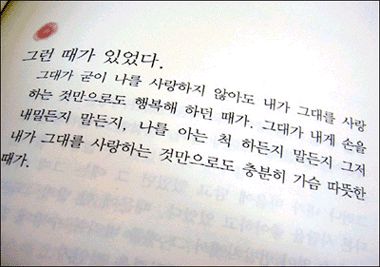 그런 때가 있었다.
그대가 굳이 나를 사랑하지 않아도 내가 그대를 사랑
하는 것만으로도 행복해 하던 때가. 그대가 내게 손을
내밀든지 말든지, 나를 아는 척 하든지 말든지 그저
내가 그대를 사랑하는 것만으로도 충분히 가슴 따뜻한
때가.